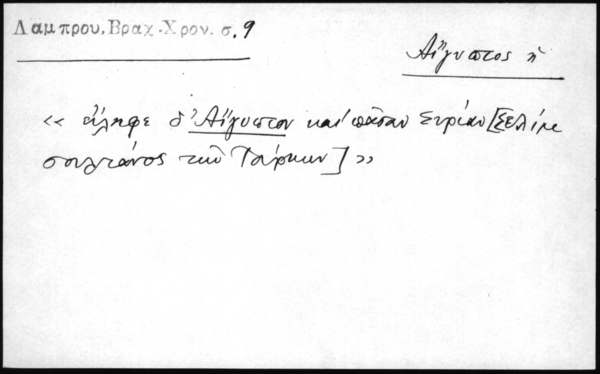 Λαμπρου, Βραχ. Χρον. σ. 9
Αἴγυπτος ἡ
« εἴληφε δ' Αἴγυπτον καὶ πᾶσαν Συρίαν [Σελὶμ
σουλτάνος τῶν Τούρκων] »